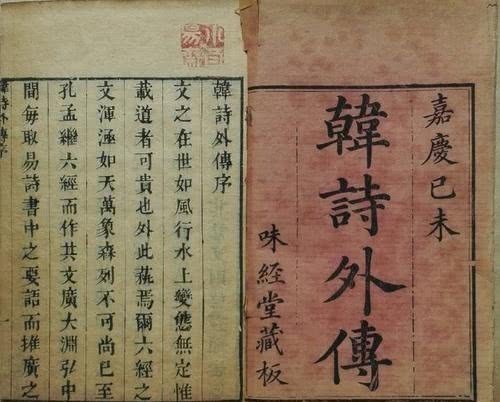 嘉慶已未
韓詩外傳
味經堂藏板
韓詩外傳序
文之在世如風行水上變態無定惟
載道者可貴也外此蔑焉爾六經之
文渾涵如天萬象森列不可尚已至
孔孟繼六經而作其文廣大淵弘中
間每取易詩書中之要語而推廣之
韓詩外傳序
一